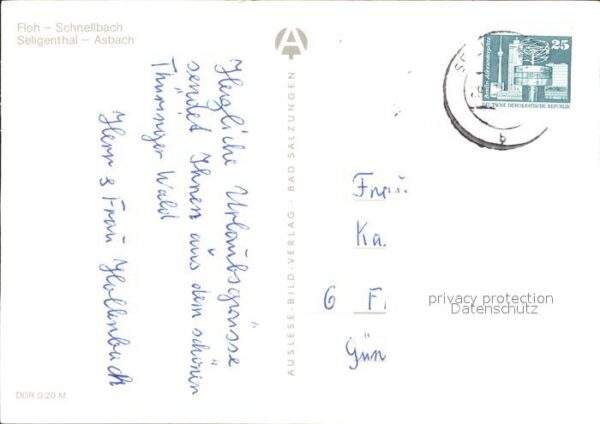 Floh – Schnellbach
Seligenthal – Asbach
Herzliche Urlaubsgrüsse
sendet Ihnen aus dem schönen
Thüringer Wald
Herr & Frau Hollenbach
AUSLESE-BILD-VERLAG · BAD SALZUNGEN
25
DEUTSCHE DEMOKRATISCHE REPUBLIK
b
Frau
Ka.
6 F
Gün
privacy protection
Datenschutz
DDR 0,20 M